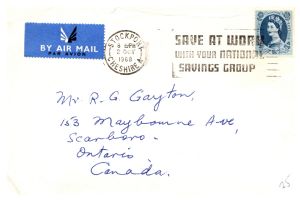 BY AIR MAIL
PAR AVION
STOCKPORT
CHESHIRE
8 – PM
2 OCT
1968
SAVE AT WORK
WITH YOUR NATIONAL
SAVINGS GROUP
Mr R. G Gayton,
153 Maybourne Ave,
Scarboro.
Ontario
Canada.